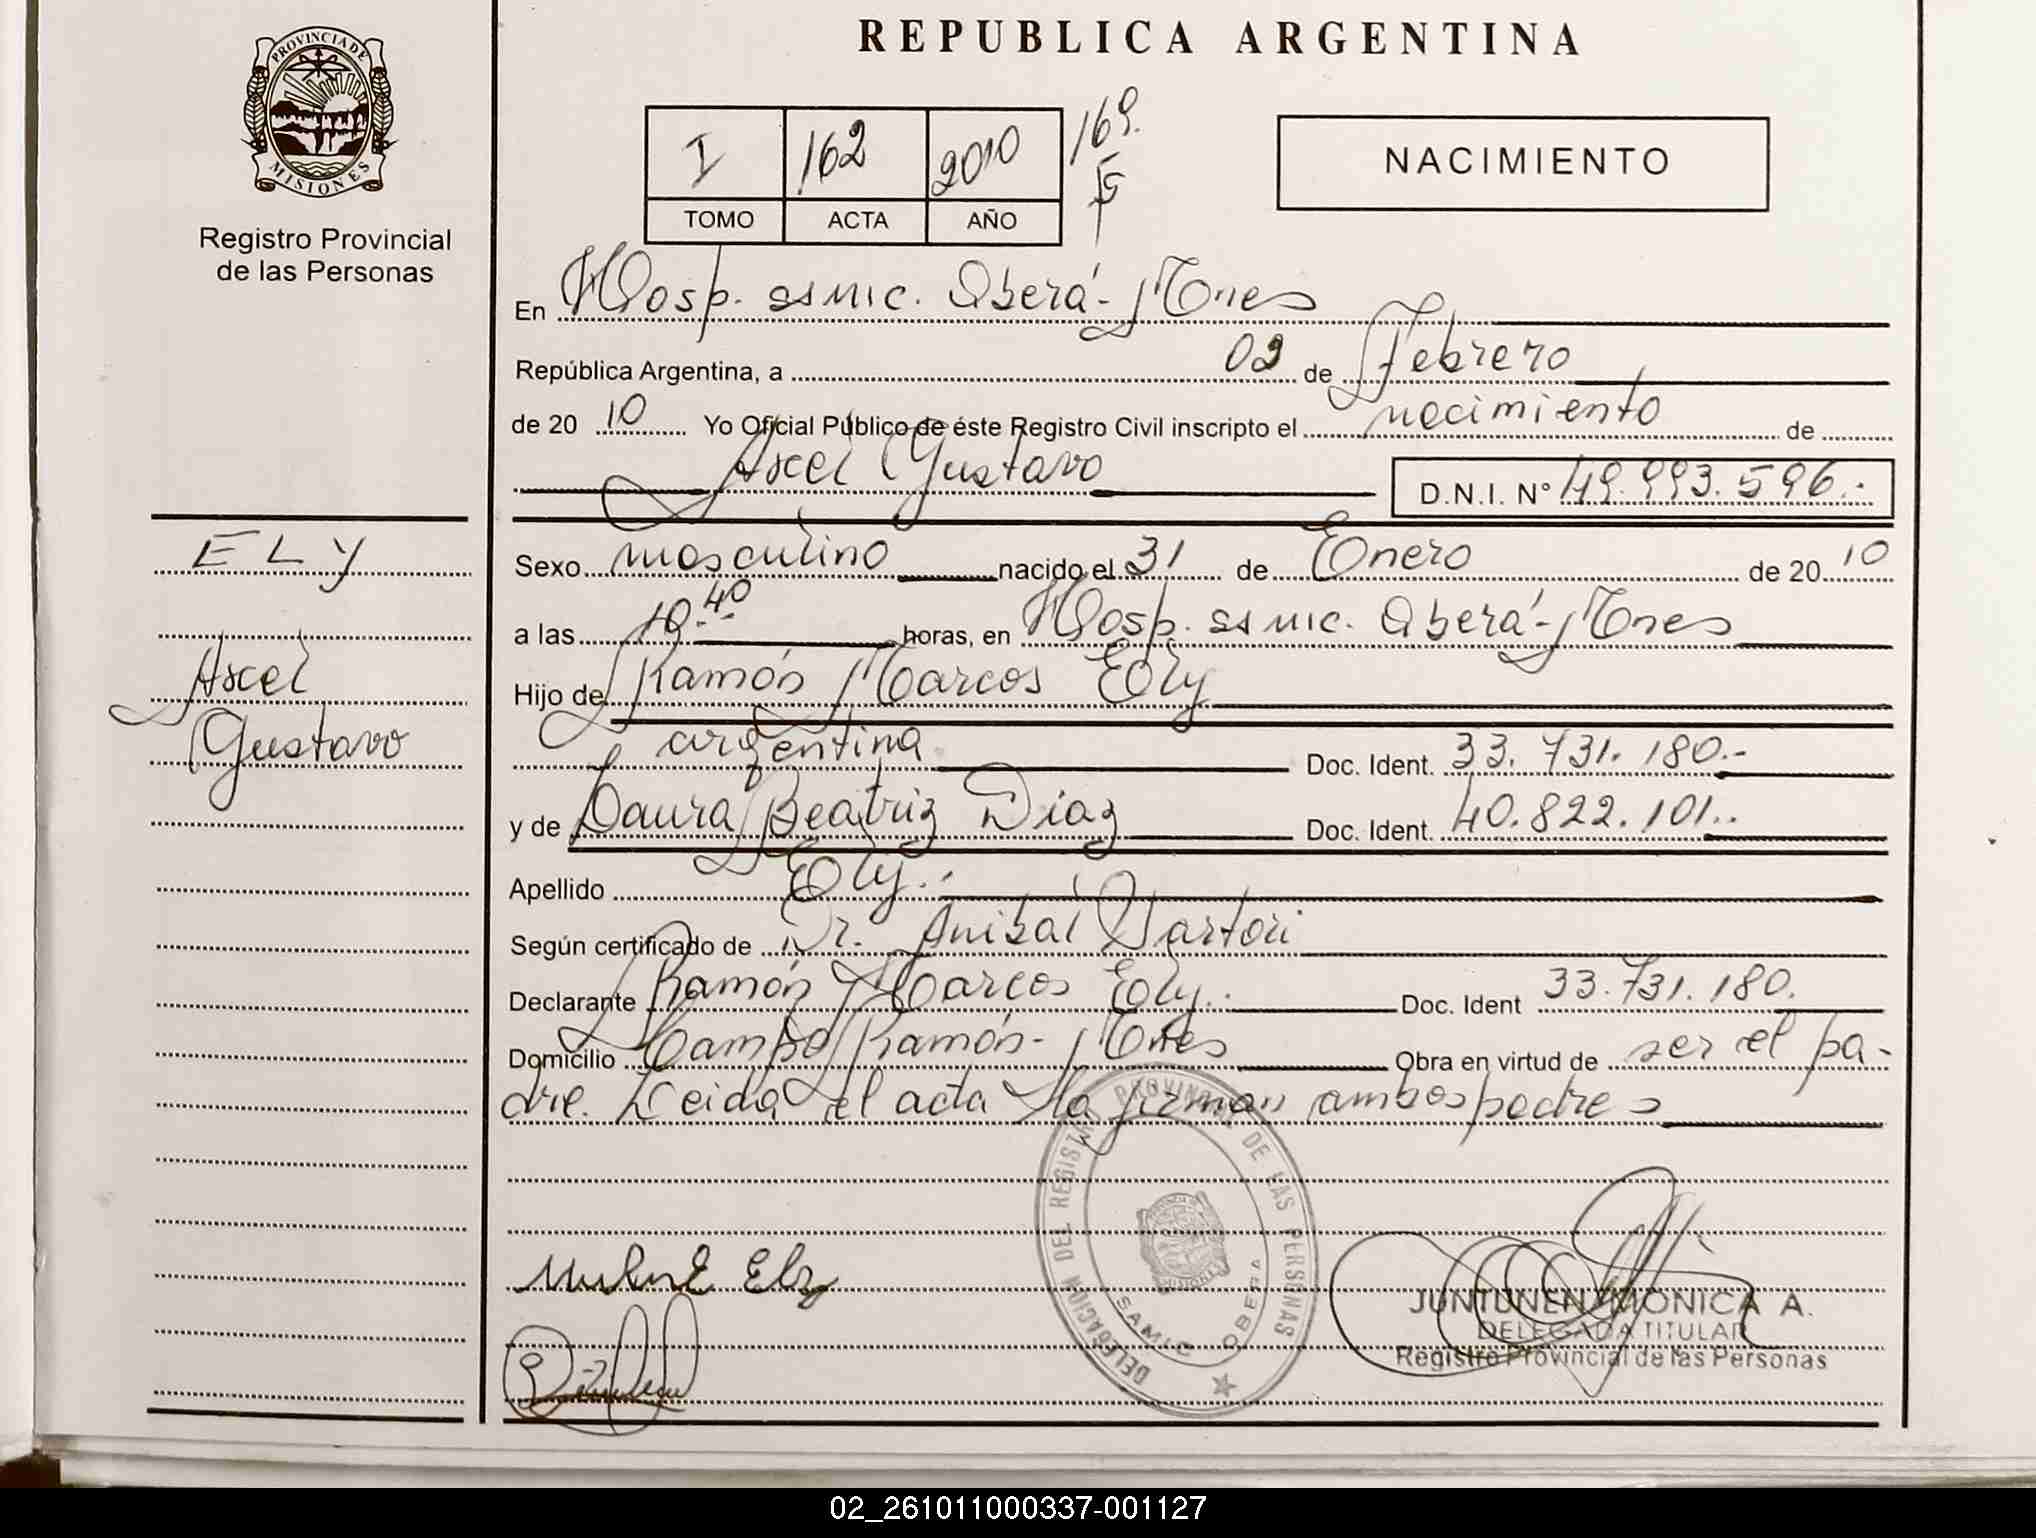 REPUBLICA ARGENTINA
PROVINCIA DE
MISIONES
Registro Provincial
de las Personas
I 162 2010 169.
TOMO ACTA AÑO
NACIMIENTO
En Hosp. samic. Oberá- Mnes
República Argentina, a 02 de Febrero
de 20 10 Yo Oficial Público de éste Registro Civil inscripto el nacimiento de
Axcel Gustavo D.N.I. N° 49.993.596.-
ELY
Axcel
Gustavo
Sexo masculino nacido el 31 de Enero de 20 10
a las 19.40 horas, en Hosp. samic. Oberá- Mnes
Hijo de Ramón Marcos Ely
argentina Doc. Ident. 33.731.180.-
y de Laura Beatriz Diaz Doc. Ident. 40.822.101..
Apellido Ely.-
Según certificado de Dr. Anibal Sartori
Declarante Ramón Marcos Ely.. Doc. Ident 33.731.180.
Domicilio Campo Ramón- Mnes Obra en virtud de ser el pa-
dre. Leida el acta la firman ambos padres
DELEGACION DEL REGISTRO PROVINCIAL DE LAS PERSONAS
SAMIC OBERA
Ely
JUNTUNEN MONICA A.
DELEGADA TITULAR
Registro Provincial de las Personas
02_261011000337-001127